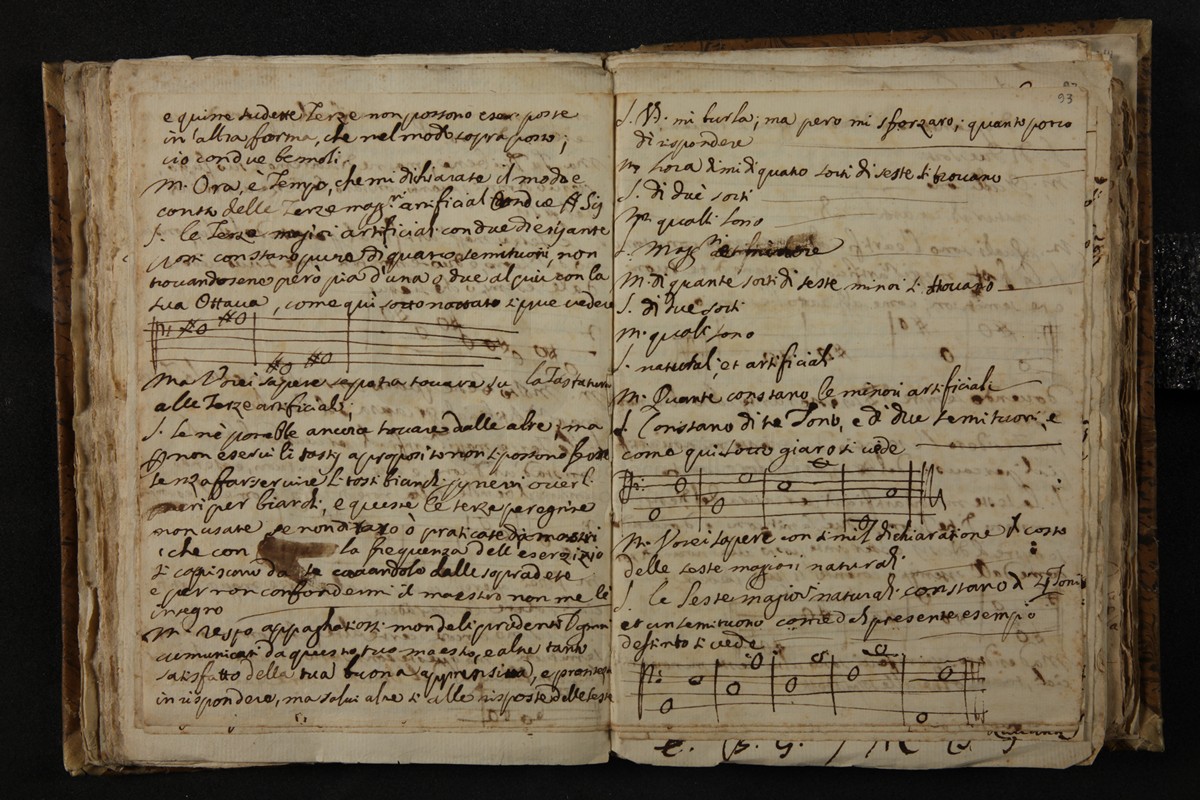 e quime sudette Terze non possono eser poste
in altra forma, che nel modo sopra posto;
cio con due bemoli.
M. Ora, è Tempo, che mi dichiarate il modo e
consta delle Terze magri artificial Con due
S. le Terze magiri artificiali con due diesis ante
posti constano pure di quatro semituoni, non
trovandosene però più d'una ò due al piu con la
sua Ottava, come quì sotto nottato si puè vedere
Ma Vorei sapere se potra trovare su la Tastatura
alle Terze artificiali;
S. Se nè posoble ancora trovare dalle altre, ma
non eservi li tasty a proposito non si possono
senza farservire li tosti biandi p neri overli
neri per biandi, e queste le terze peregrine
non usate se non di raro ò praticate da mastri
che con la frequenza dell eserzizio
si capiscono da se cavandole dalle sopradete
e per non confondermi il maestro non me le
insegno
M. resto appaghatiss mondeli prudenti
cumunicati da questo tuo maesto, e altre tanto
satisfatto della tua buona apprensiva, e prontezza
in rispondere, ma salvi altre si alle risposte delle seste
93
S. V.S. mi burla; ma pero mi sforzaro, quanto porro
di rispondere
M. hora dimi di quato sorti di seste si trovano
S. di duè sorti
M. quali sono
S. Magri et minore
M. di quante sorti di seste minori si trovano
S. di due sorti
M. quali sono
S. naturali, et artificiali
M. Quante constano le minori artificiali
S. Constano di tre Toni, e di due semituoni, e
come qui sotto giaro si vede
M. Vorei sapere con simil dichiaratione il costo
delle seste magiori naturali
S. le Seste magiori naturali constano di 4 Toni
et un semituono come del presente esempio
destinto si vede